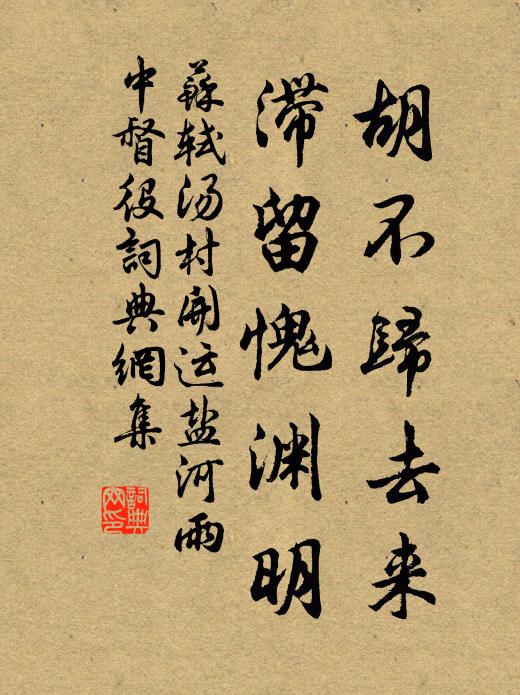 胡不歸去来
滞留愧渊明
蘇轼汤村開运盐河雨
中督役詞典網集
詞典網印